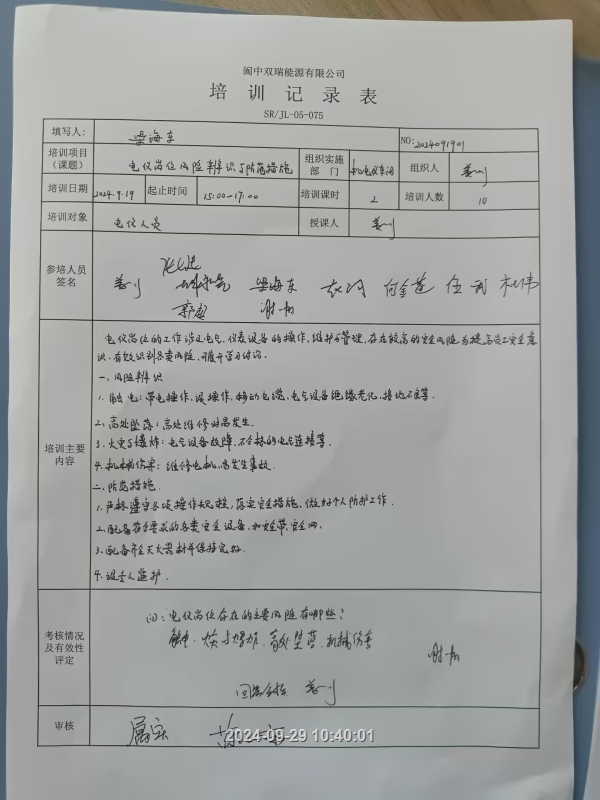 阆中双瑞能源有限公司
培训记录表
SR/JL-05-075
填写人: 梁海东 NO:2024091901
培训项目（课题） 电仪岗位风险辨识与防范措施 组织实施部门 机电仪车间 组织人 姜
培训日期 2024.9.19 起止时间 15:00-17:00 培训课时 2 培训人数 10
培训对象 电仪人员 授课人 姜
参培人员签名
姜 梁海东 伍 杜伟
谢
培训主要内容
电仪岗位的工作涉及电气、仪表设备的操作、维护与管理,存在较高的安全风险,为提高员工安全意
识,有效识别各类风险,开展学习讨论.
一、风险辨识
1.触电:带电操作,误操作,移动电缆,电气设备绝缘老化,接地不良等.
2.高处坠落:高处维修时易发生.
3.火灾与爆炸:电气设备故障,不合格的电气连接等.
4.机械伤害:维修电机易发生事故.
二、防范措施.
1.严格遵守各项操作规程,落实安全措施,做好个人防护工作.
2.配备符合要求的各类安全设备,如安全带,安全网.
3.配备齐全灭火器材并保持完好.
4.设专人监护.
考核情况及有效性评定
问:电仪岗位存在的主要风险有哪些?
触电、火灾与爆炸、高处坠落、机械伤害
谢
回答合格 姜
审核 属实
2024-09-29 10:40:01